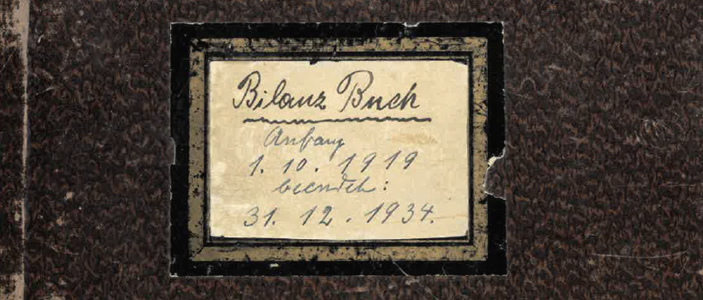 Bilanz Buch
Anfang
1. 10. 1919
beendet:
31. 12. 1934.